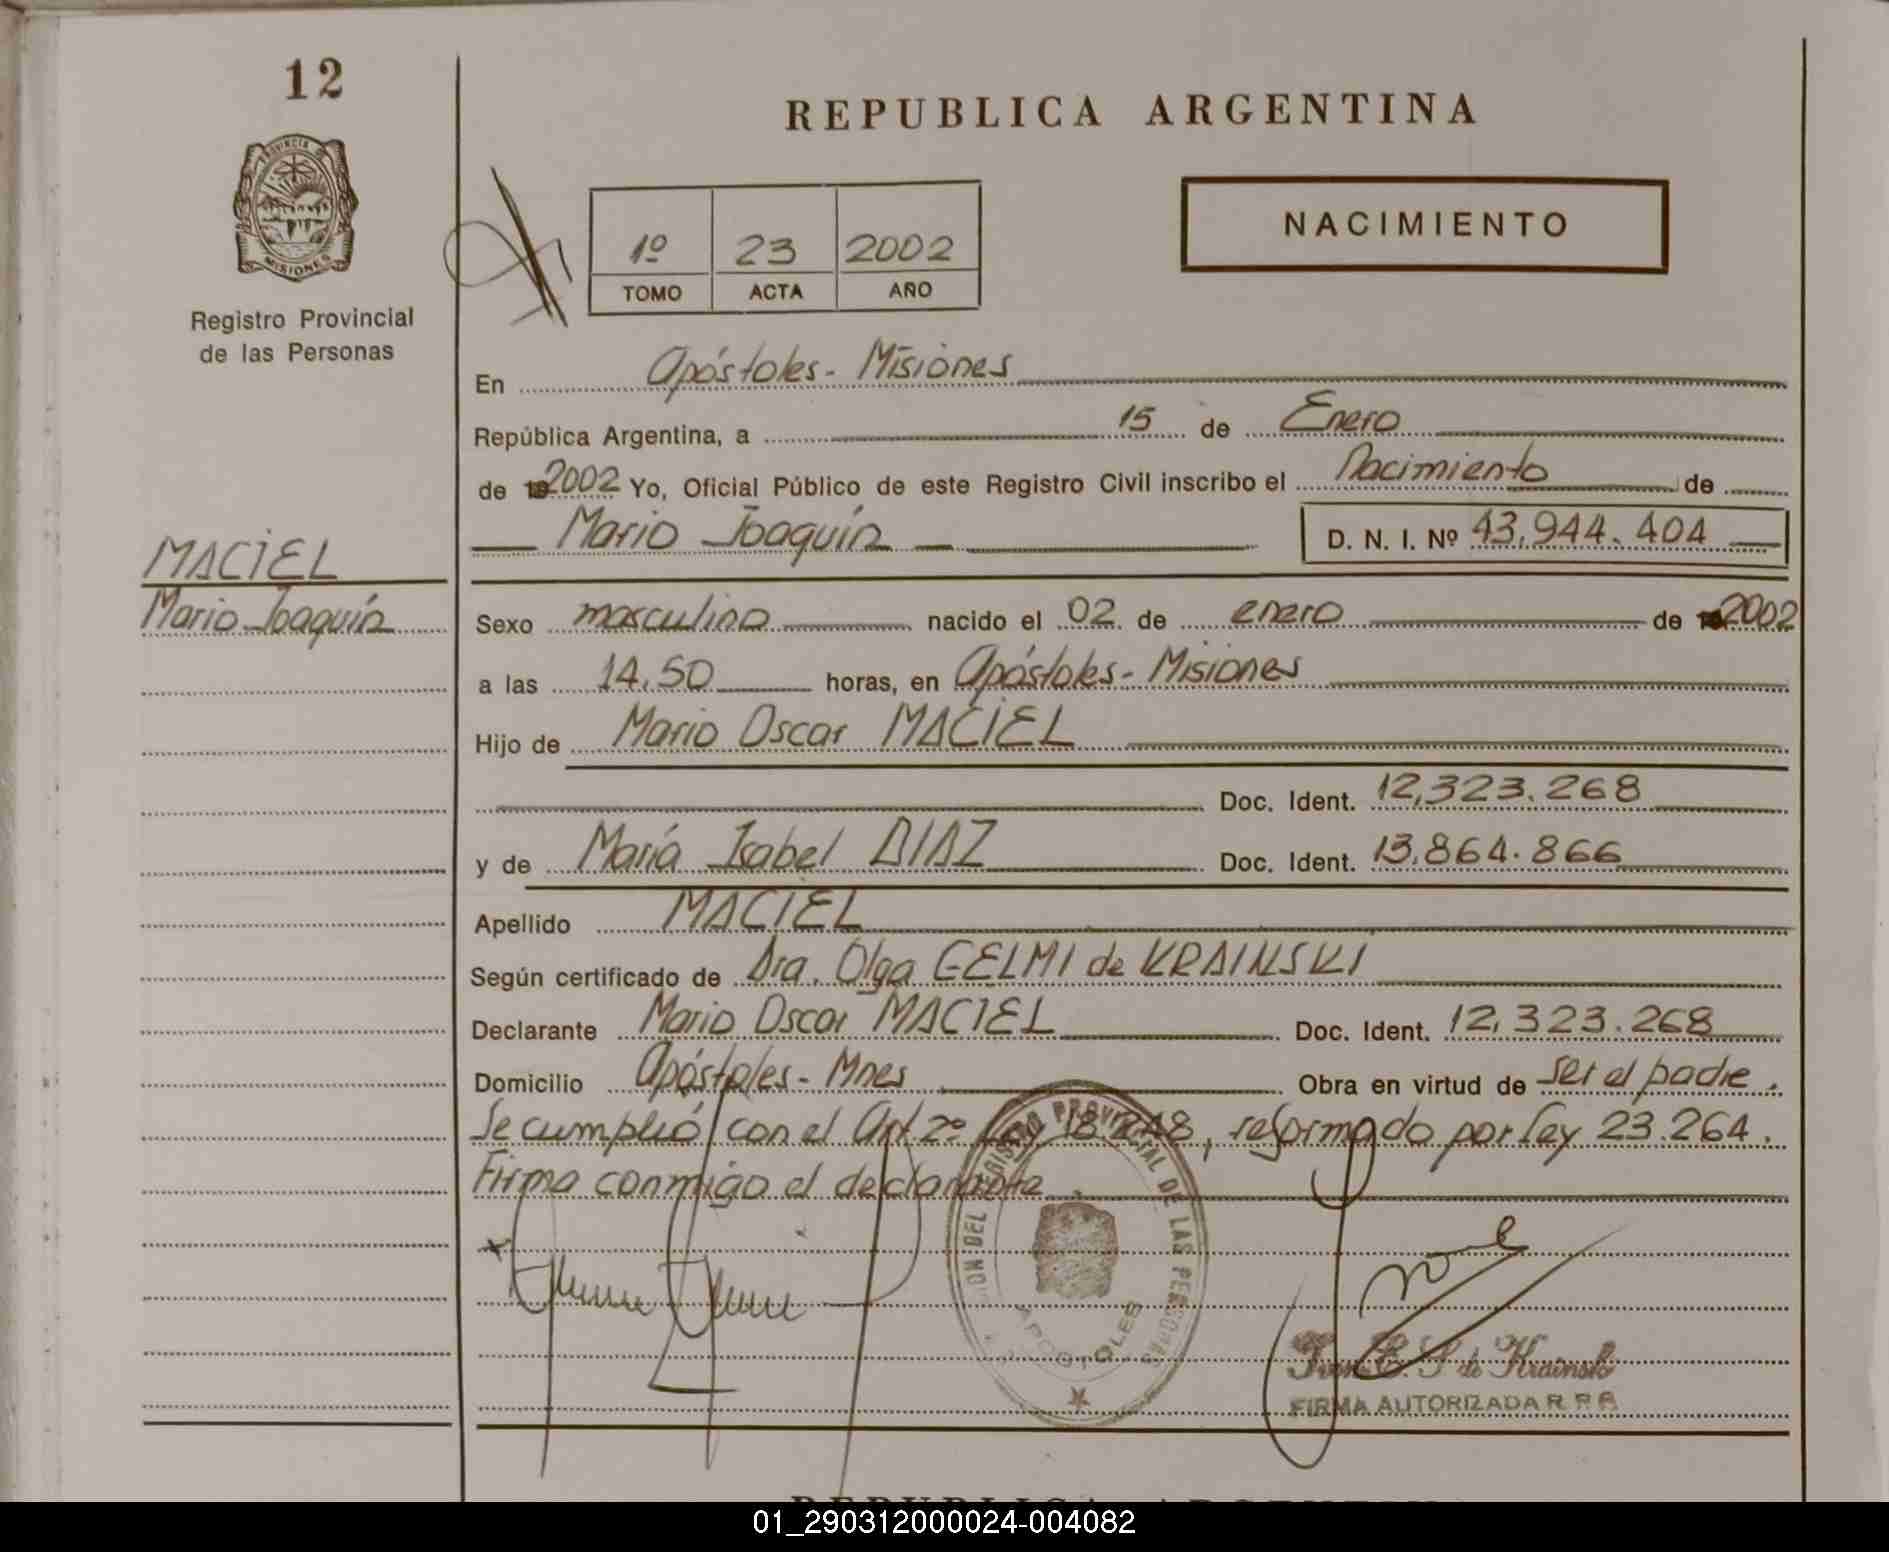 12
REPUBLICA ARGENTINA
PROVINCIA DE
MISIONES
NACIMIENTO
1º 23 2002
TOMO ACTA AÑO
Registro Provincial
de las Personas
En Apóstoles - Misiones
República Argentina, a 15 de Enero
de 2002 Yo, Oficial Público de este Registro Civil inscribo el Nacimiento de
Mario Joaquín D. N. I. Nº 43,944.404
MACIEL
Mario Joaquín
Sexo masculino nacido el 02 de enero de 2002
a las 14,50 horas, en Apóstoles - Misiones
Hijo de Mario Oscar MACIEL
Doc. Ident. 12,323.268
y de María Isabel DIAZ Doc. Ident. 13.864.866
Apellido MACIEL
Según certificado de Dra. Olga GELMI de KRAINSKI
Declarante Mario Oscar MACIEL Doc. Ident. 12,323.268
Domicilio Apóstoles - Mnes Obra en virtud de ser el padre.
Se cumplió con el Art 2º Ley 18.248, reformado por Ley 23.264.
Firma conmigo el declarante
REGISTRO PROVINCIAL DE LAS PERSONAS
APOSTOLES
de Krainski
FIRMA AUTORIZADA R.P.P.
REPUBLICA ARGENTINA
01_290312000024-004082